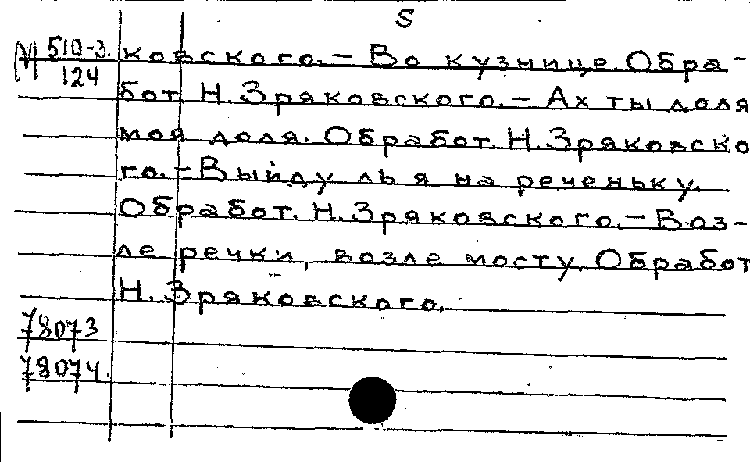 5
М 510-3. ковского. – Во кузнице. Обра-
124 бот. Н. Зряковского. – Ах ты доля
моя доля. Обработ. Н. Зряковско
го. – Выйду ль я на реченьку.
Обработ. Н. Зряковского. – Воз-
ле речки, возле мосту. Обработ
Н. Зряковского.
78073
78074.